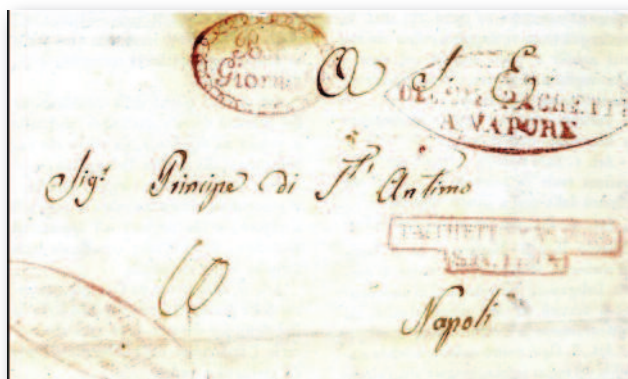 Posta
Giornal
A S. E.
PACHETTI
A VAPORE
Sig.r Principe di S.t Antimo
PACCHETTI A VAPORE
Napoli